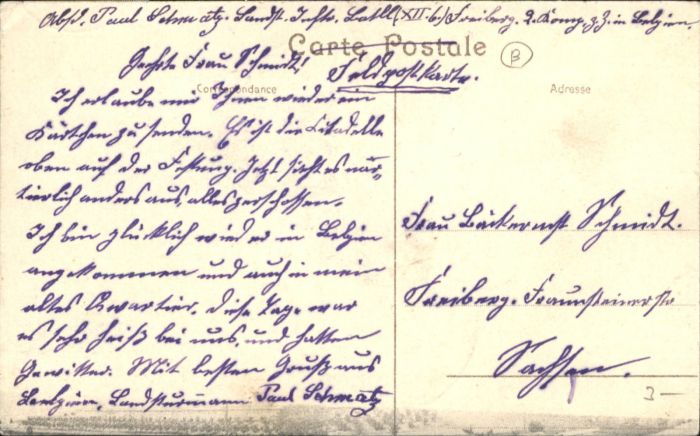 Absd. Paul Schmatz. Landst. Inftr. Batll (XII-6.) Freiberg. 2. Komp. z. Z. in Belgien.
Carte Postale
B
Geehrte Frau Schmidt!
Feldpostkarte.
Correspondance
Adresse
Ich erlaube mir Ihnen wieder ein
Kärtchen zu senden. Es ist die Citadelle
oben auf der Festung. Jetzt sieht es na-
türlich anders aus, alles zerschossen.
Ich bin glücklich wieder in Belgien
angekommen und auch in mein
altes Quartier. Diese Tage war
es sehr heiß bei uns, und hatten
Gewitter. Mit besten Gruß aus
Belgien, Landsturmann Paul Schmatz
Frau Bäckermst Schmidt.
Freiberg. Frauensteinerstr
Sachsen.
3—